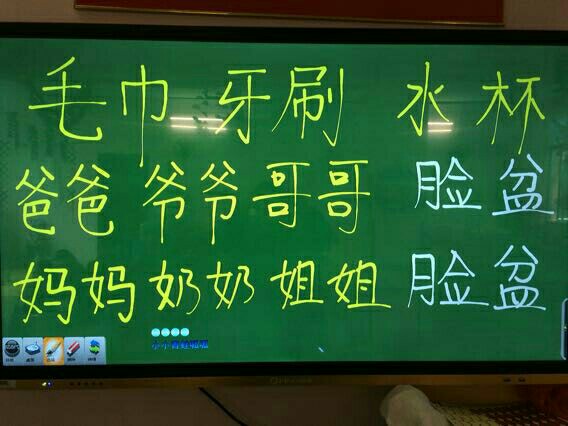 毛巾 牙刷 水杯
爸爸 爷爷 哥哥 脸盆
妈妈 奶奶 姐姐 脸盆